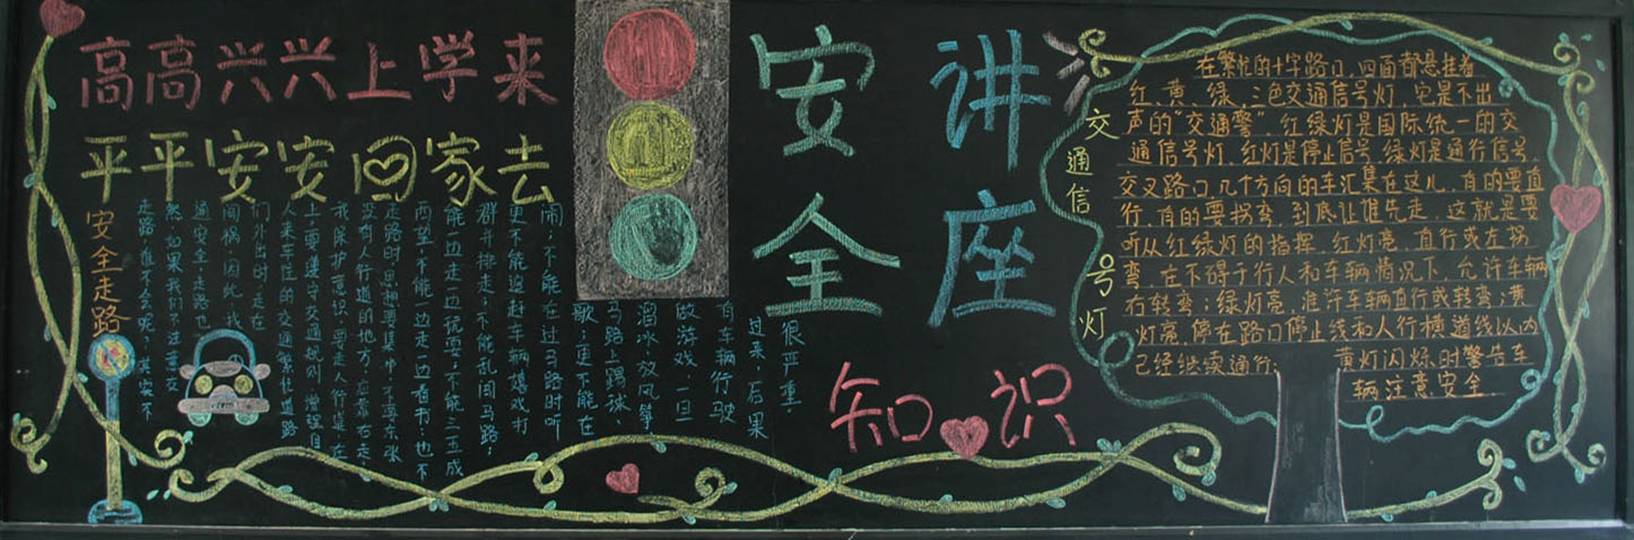 高高兴兴上学来
平平安安回家去
安全走路
走路,谁不会呢?其实不
然,如果我们不注意交
通安全,走路也
闯祸.因此,我
们外出时,走在
人来车往的交通繁忙道路
上要遵守交通规则,增强自
我保护意识,要走人行道,在
没有人行道的地方,应靠右走,
走路时思想要集中,不要东张
西望,不能一边走一边看书,也不
能一边走一边玩耍;不能三五成
群并排走;不能乱闯马路;
更不能追赶车辆嬉戏打
闹;不能在过马路时听
歌;更不能在
马路上踢球、
溜冰、放风筝
做游戏,一旦
有车辆行驶
过来,后果
很严重.
安全
讲座
知识
交通信号灯
在繁忙的十字路口,四面都悬挂着
红、黄、绿,三色交通信号灯,它是不出
声的"交通警".红绿灯是国际统一的交
通信号灯.红灯是停止信号,绿灯是通行信号.
交叉路口,几个方向的车汇集在这儿,有的要直
行,有的要拐弯,到底让谁先走,这就是要
听从红绿灯的指挥.红灯亮,直行或左拐
弯,在不碍于行人和车辆情况下,允许车辆
右转弯;绿灯亮,准许车辆直行或转弯;黄
灯亮,停在路口停止线和人行横道线以内
已经继续通行;
黄灯闪烁时警告车
辆注意安全.